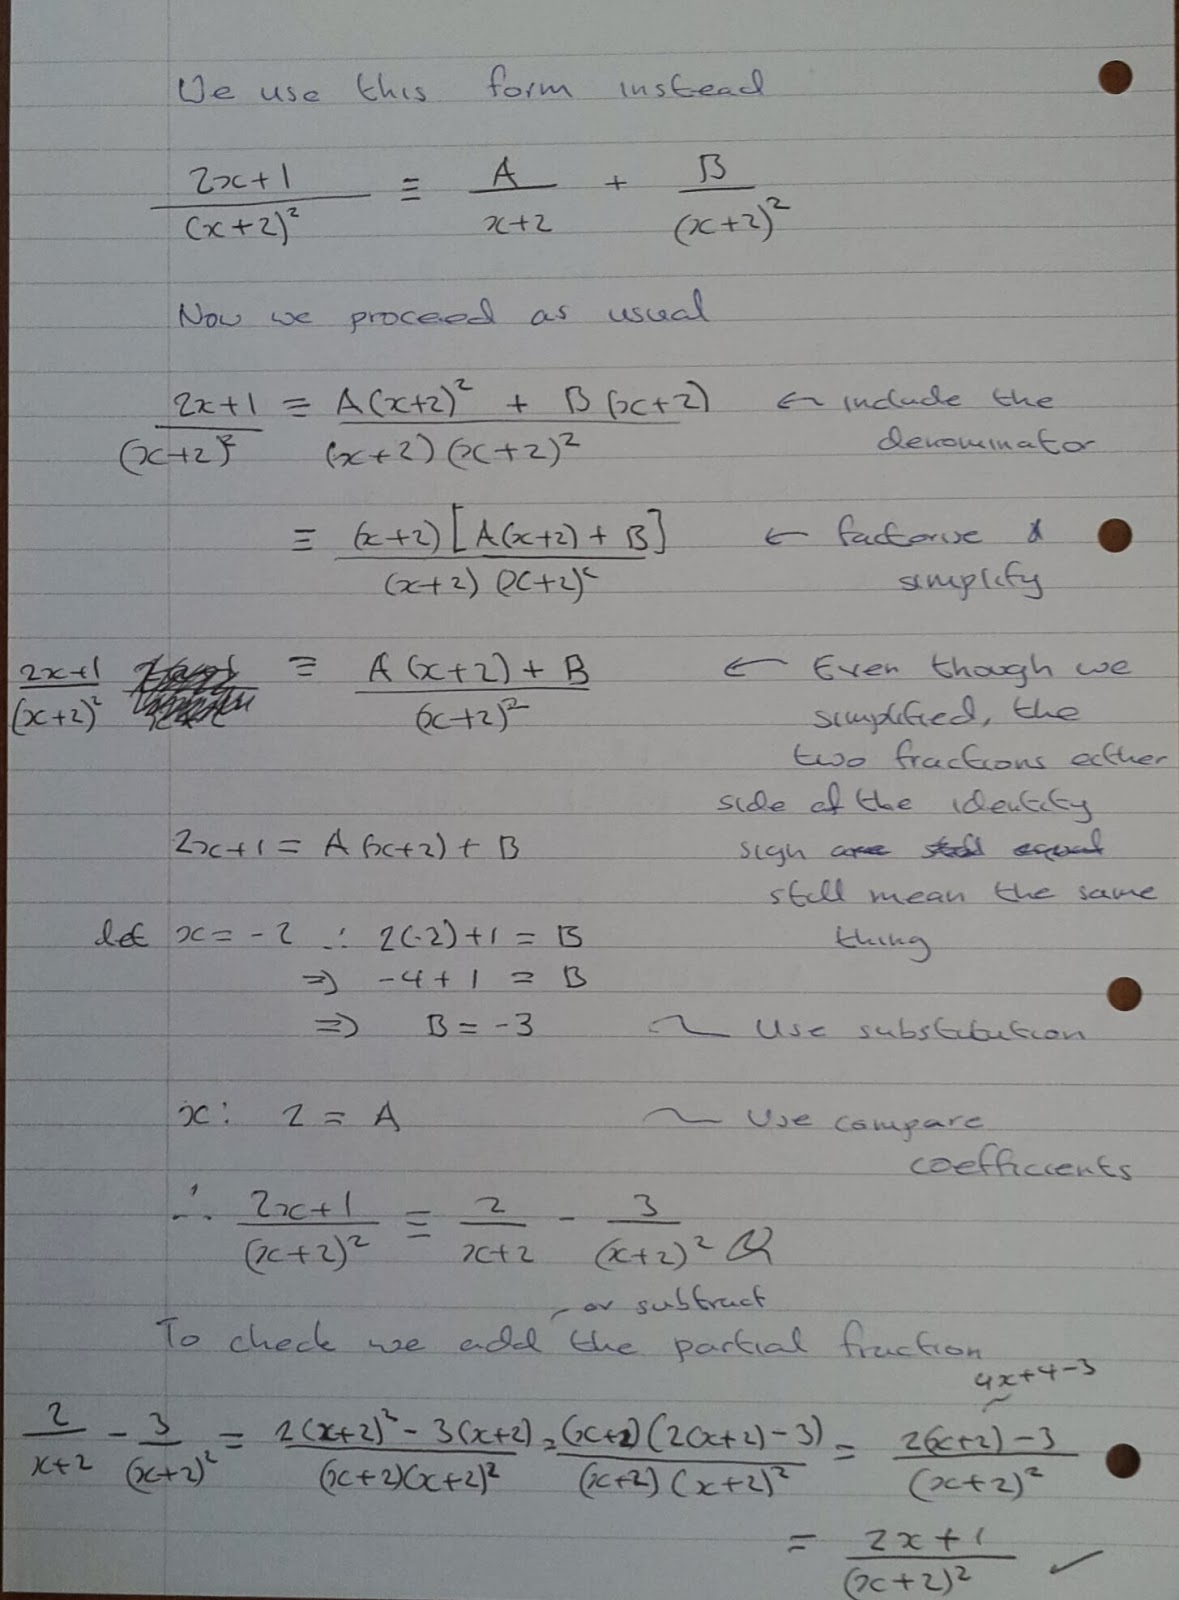 We use this form instead
2x+1 / (x+2)² ≡ A / x+2 + B / (x+2)²
Now we proceed as usual
2x+1 / (x+2)² ≡ A(x+2)² + B(x+2) / (x+2)(x+2)² ← include the
denominator
≡ (x+2)[A(x+2) + B] / (x+2)(x+2)² ← factorise &
simplify
2x+1 / (x+2)² ≡ A(x+2) + B / (x+2)² ← Even though we
simplified, the
two fractions either
side of the identity
2x+1 = A(x+2) + B sign are still equal
still mean the same
let x = -2 ∴ 2(-2)+1 = B thing
⇒ -4+1 = B
⇒ B = -3 ~ Use substitution
x: 2 = A ~ Use compare
coefficients
∴ 2x+1 / (x+2)² ≡ 2 / x+2 - 3 / (x+2)²
or subtract
To check we add the partial fraction
4x+4-3
2 / x+2 - 3 / (x+2)² = 2(x+2)² - 3(x+2) / (x+2)(x+2)² = (x+2)(2(x+2)-3) / (x+2)(x+2)² = 2(x+2)-3 / (x+2)²
= 2x+1 / (x+2)² ✓